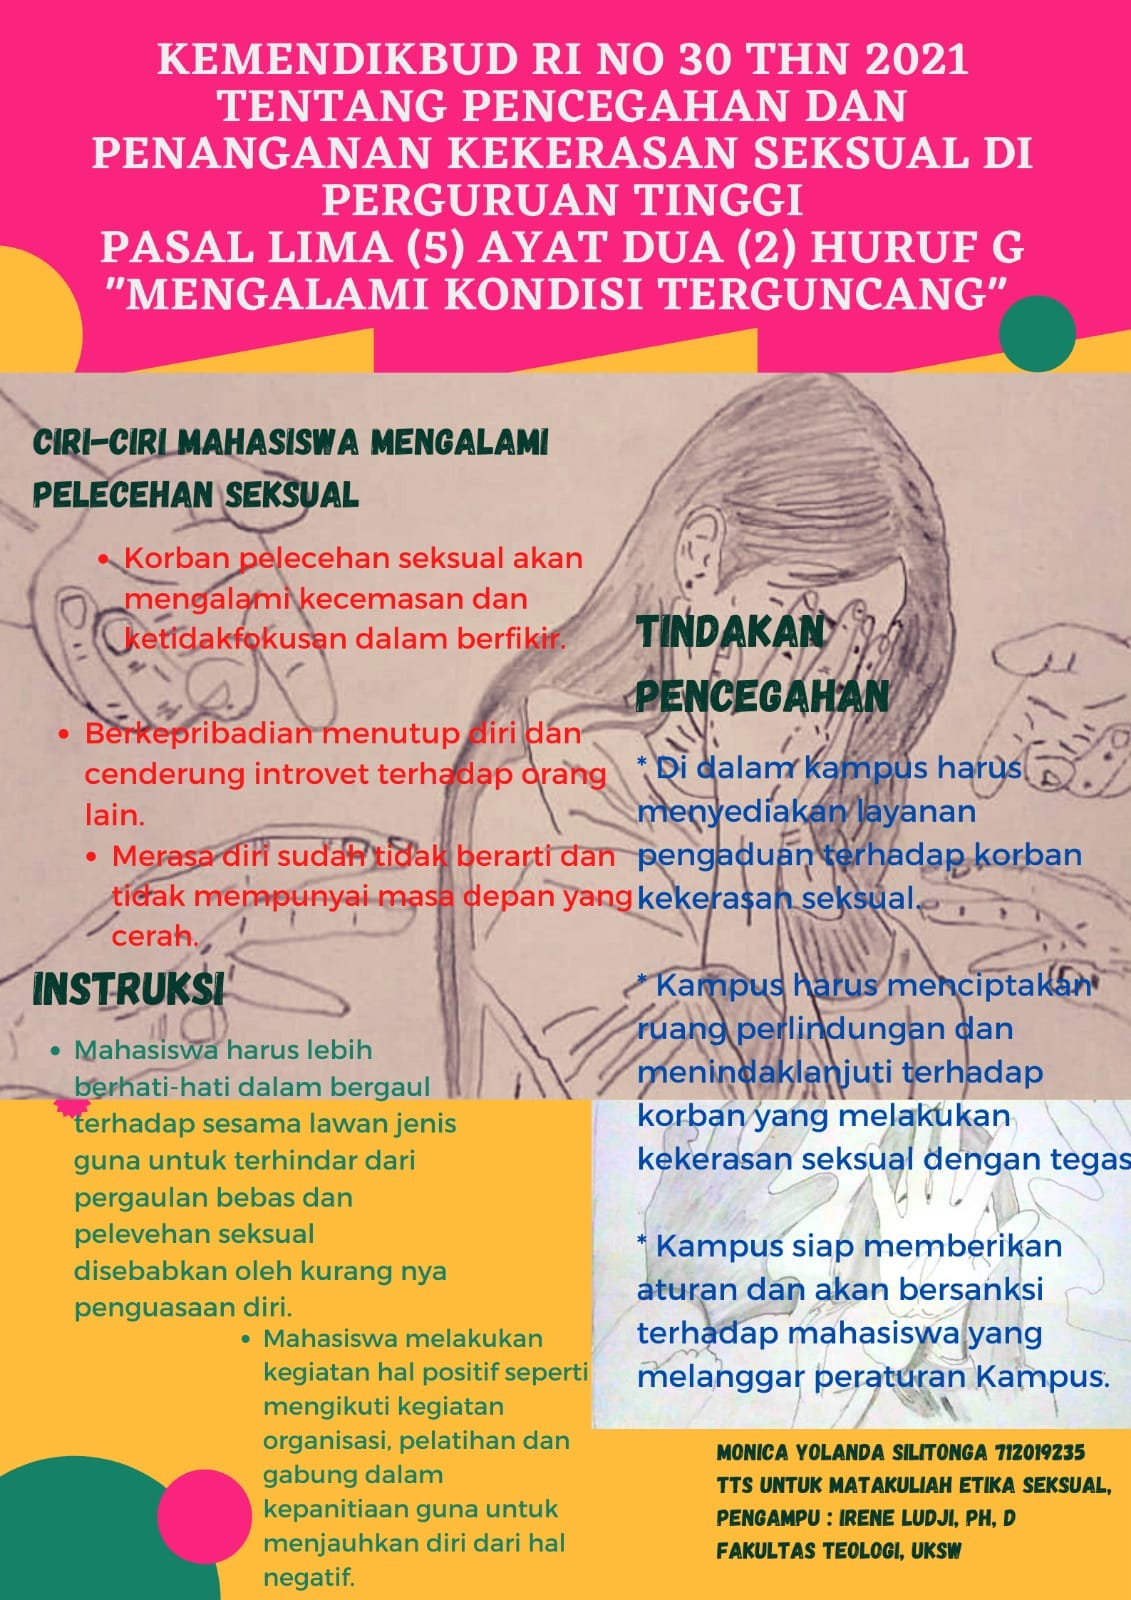 KEMENDIKBUD RI NO 30 THN 2021
TENTANG PENCEGAHAN DAN
PENANGANAN KEKERASAN SEKSUAL DI
PERGURUAN TINGGI
PASAL LIMA (5) AYAT DUA (2) HURUF G
"MENGALAMI KONDISI TERGUNCANG"
CIRI-CIRI MAHASISWA MENGALAMI
PELECEHAN SEKSUAL
• Korban pelecehan seksual akan
mengalami kecemasan dan
ketidakfokusan dalam berfikir.
• Berkepribadian menutup diri dan
cenderung introvet terhadap orang
lain.
• Merasa diri sudah tidak berarti dan
tidak mempunyai masa depan yang
cerah.
INSTRUKSI
• Mahasiswa harus lebih
berhati-hati dalam bergaul
terhadap sesama lawan jenis
guna untuk terhindar dari
pergaulan bebas dan
pelevehan seksual
disebabkan oleh kurang nya
penguasaan diri.
• Mahasiswa melakukan
kegiatan hal positif seperti
mengikuti kegiatan
organisasi, pelatihan dan
gabung dalam
kepanitiaan guna untuk
menjauhkan diri dari hal
negatif.
TINDAKAN
PENCEGAHAN
* Di dalam kampus harus
menyediakan layanan
pengaduan terhadap korban
kekerasan seksual.
* Kampus harus menciptakan
ruang perlindungan dan
menindaklanjuti terhadap
korban yang melakukan
kekerasan seksual dengan tegas
* Kampus siap memberikan
aturan dan akan bersanksi
terhadap mahasiswa yang
melanggar peraturan Kampus.
MONICA YOLANDA SILITONGA 712019235
TTS UNTUK MATAKULIAH ETIKA SEKSUAL,
PENGAMPU : IRENE LUDJI, PH, D
FAKULTAS TEOLOGI, UKSW